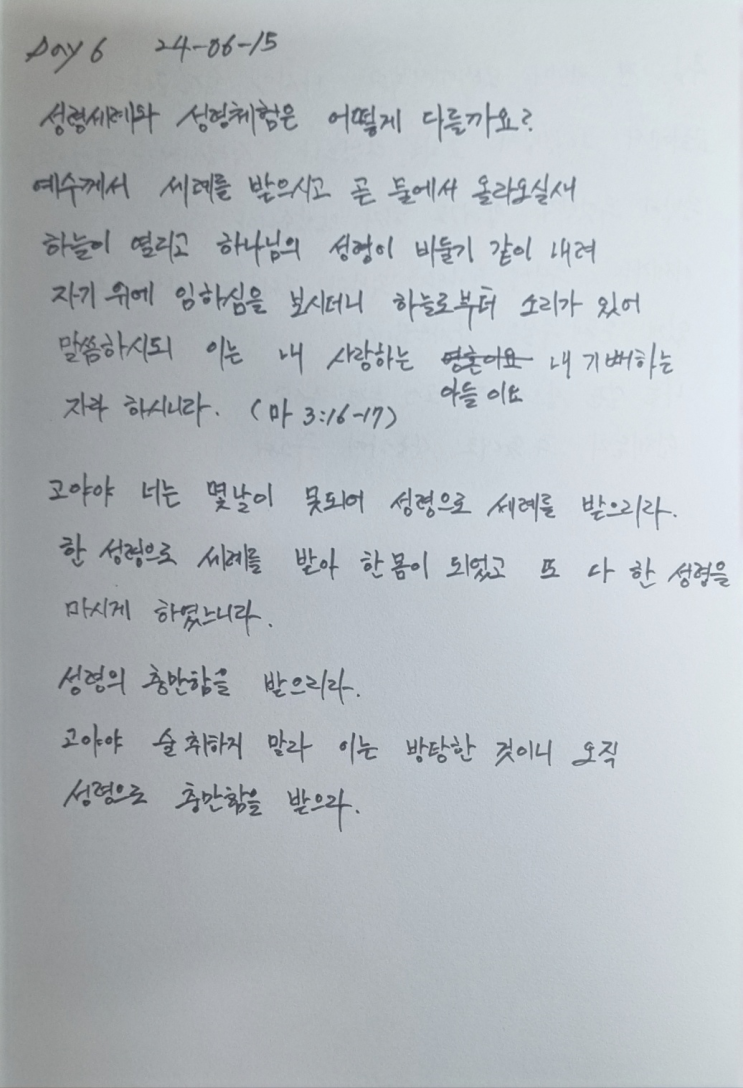 Day 6 24-06-15
성령세례와 성령체험은 어떻게 다를까요?
예수께서 세례를 받으시고 곧 물에서 올라오실새
하늘이 열리고 하나님의 성령이 비둘기 같이 내려
자기 위에 임하심을 보시더니 하늘로부터 소리가 있어
말씀하시되 이는 내 사랑하는 내 기뻐하는
아들이요
자라 하시니라. (마 3:16-17)
고야야 너는 몇날이 못되어 성령으로 세례를 받으리라.
한 성령으로 세례를 받아 한몸이 되었고 또 다 한 성령을
마시게 하였느니라.
성령의 충만함을 받으리라.
고야야 술 취하지 말라 이는 방탕한 것이니 오직
성령으로 충만함을 받으라.